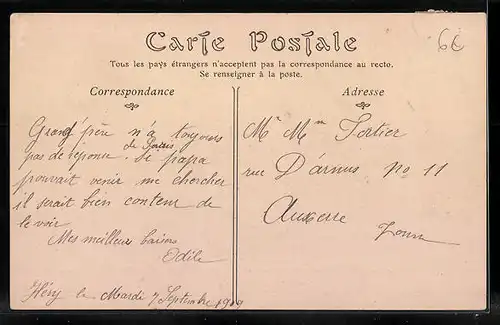 6€
Carte Postale
Tous les pays étrangers n'acceptent pas la correspondance au recto.
Se renseigner à la poste.
Correspondance
Grand'père n'a toujours
pas de réponse de Paris. Si papa
pouvait venir me chercher
il serait bien content de
le voir.
Mes meilleurs baisers
Odile
Héry le Mardi 7 Septembre 1909
Adresse
Mr Mme Fortier
rue D'armes no 11
Auxerre
Yonne